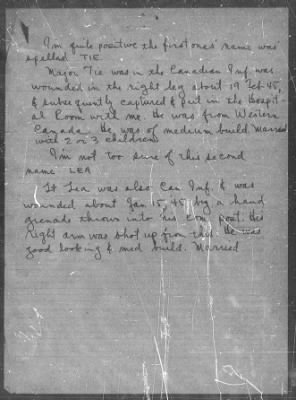 I'm quite positive the first ones' name was
spelled TIE
Major Tie was in the Canadian Inf. was
wounded in the right leg about 19 Feb 45,
& subsequently captured & put in the hospit-
al Room with me. He was from Western
Canada. He was of medium build. Married
with 2 or 3 children
I'm not too sure of this second
name LEA
Lt Lea was also Can. Inf. & was
wounded about Jan 15, 45 by a hand
grenade thrown into his com. post. His
Right arm was shot up from this. He was
good looking & med build. Married